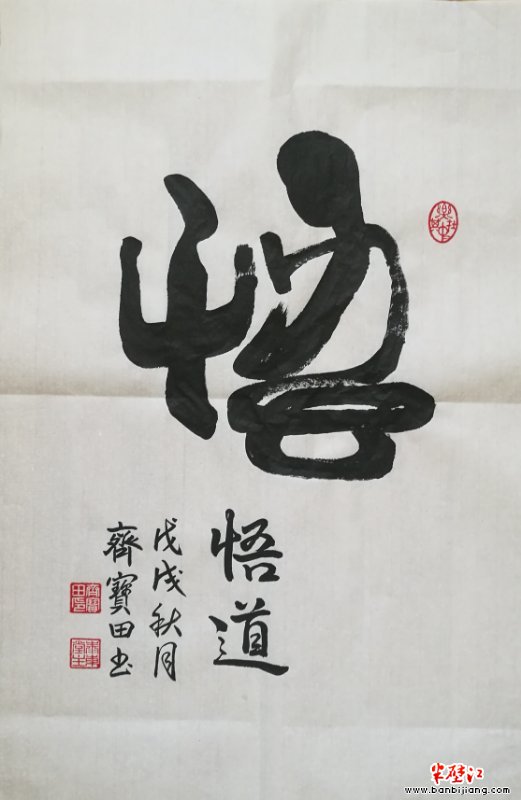 悟
悟道
戊戌秋月
齊寶田书
齊寶田印
半壁江
www.banbijiang.com